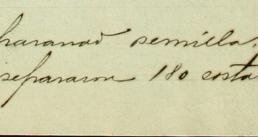 paranad semilla.
separaron 180 costa